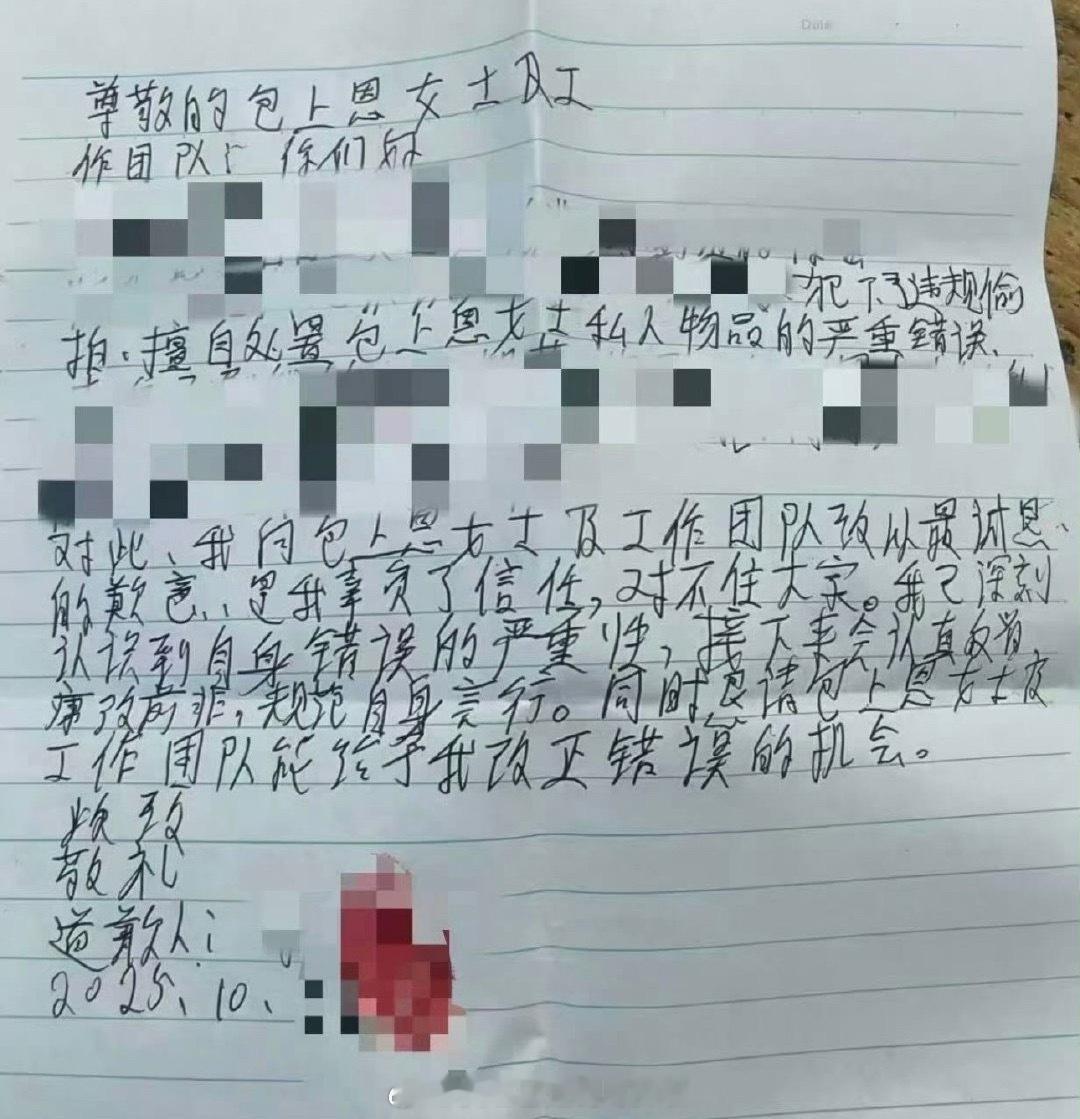 Date
尊敬的包上恩女士及工
作团队: 你们好
犯下了违规偷
拍、擅自处置包上恩女士私人物品的严重错误、
对此、我向包上恩女士及工作团队致以最诚恳、
的歉意、是我辜负了信任,对不住大家。我已深刻
认识到自身错误的严重性,接下来会认真改省,
痛改前非,规范自身言行。同时恳请包上恩女士及
工作团队能给予我改正错误的机会。
顺致
敬礼
道歉人:
2025、10、